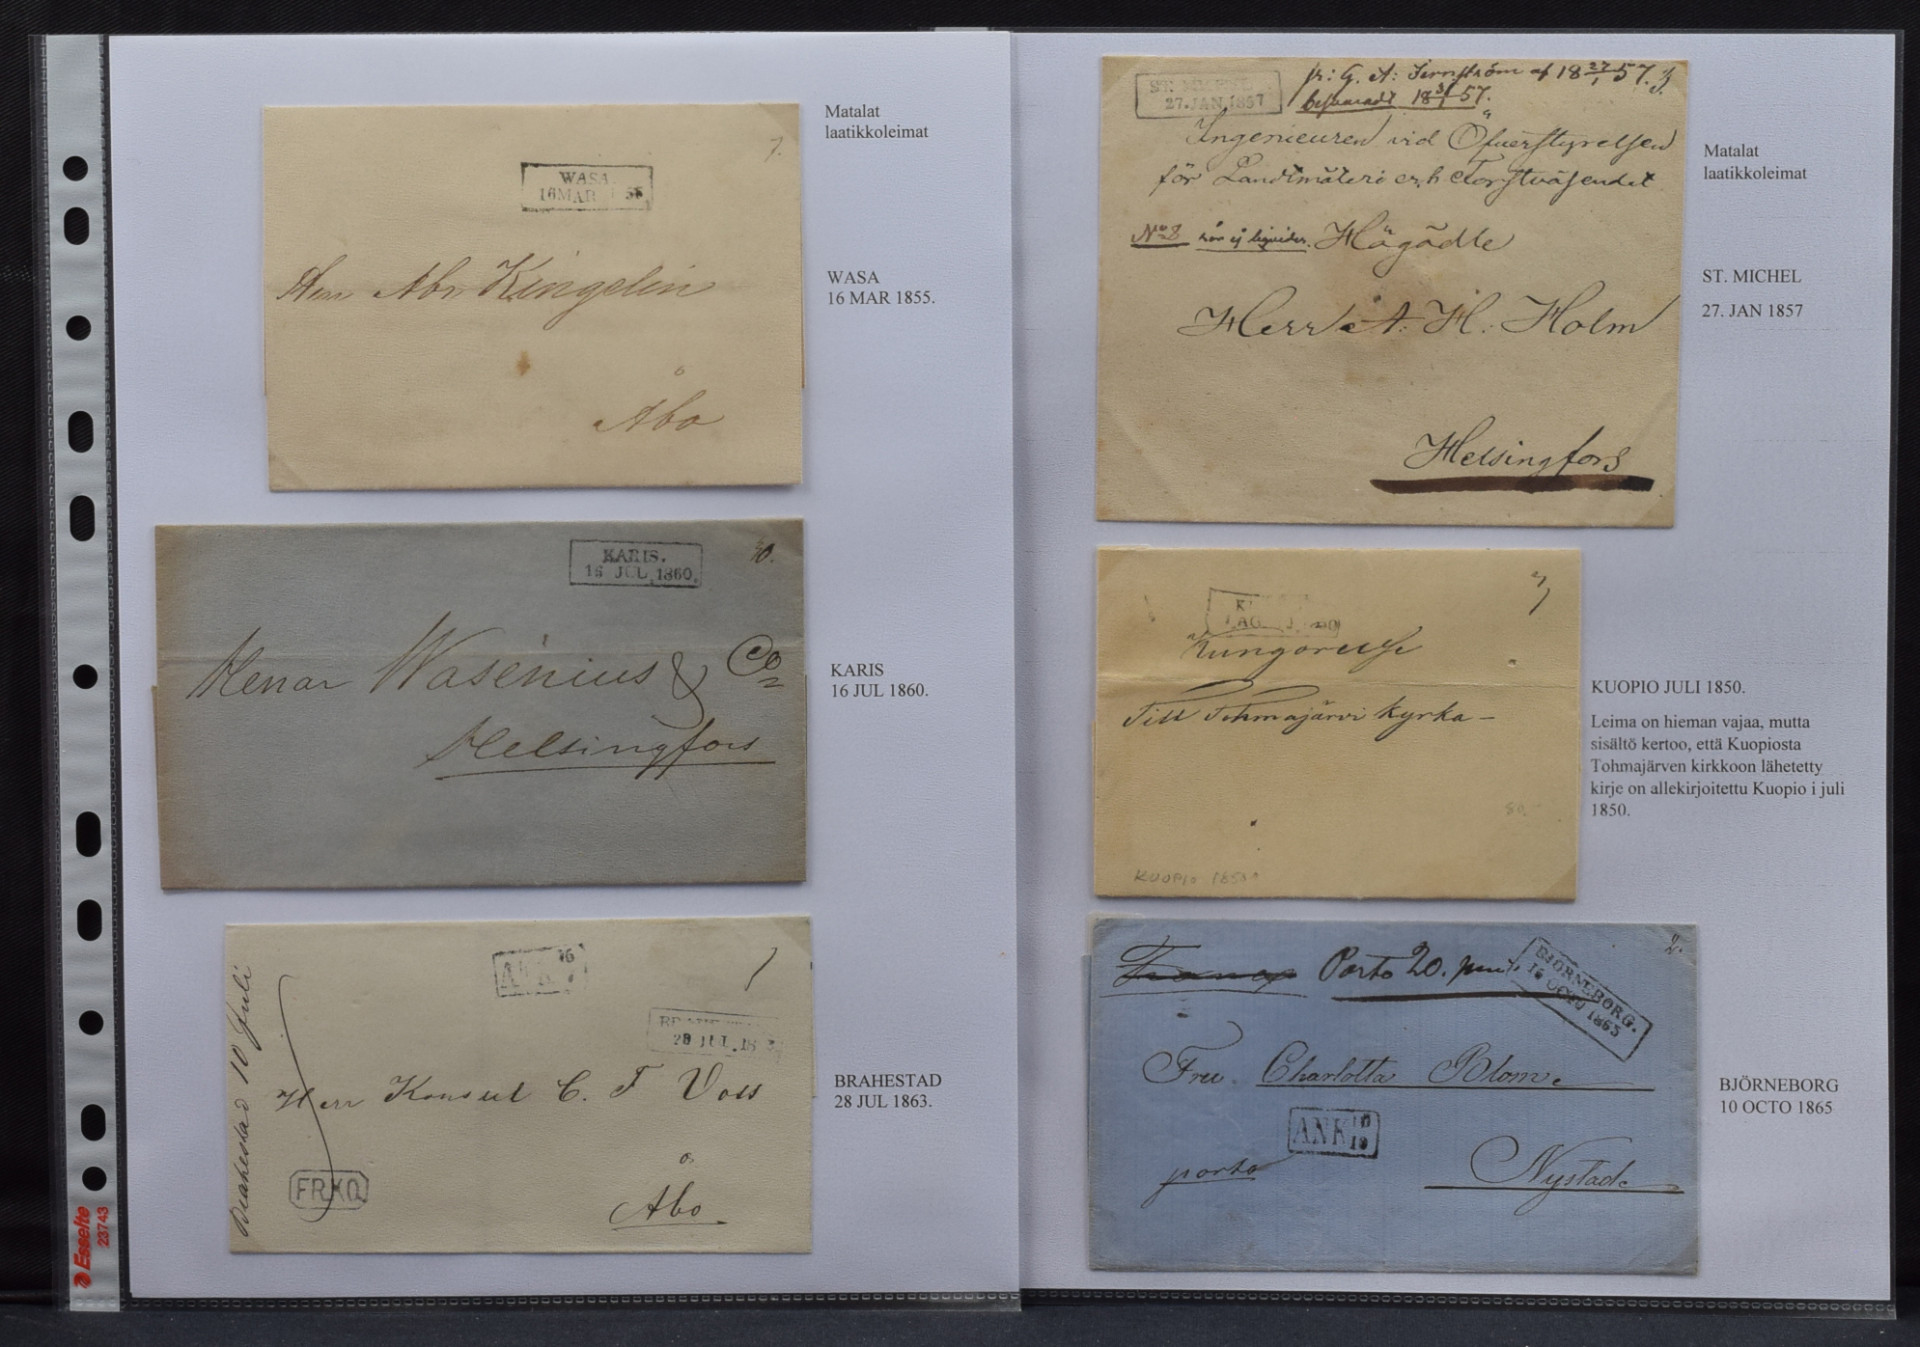 Matalat
laatikkoleimat
WASA
16 MAR 55
7.
Herr Abr Kingelin
Åbo
WASA
16 MAR 1855.
KARIS.
16 JUL 1860.
Herrar Wasenius & Co
Helsingfors
KARIS
16 JUL 1860.
ANK
28 JUL. 18
Brahestad 10 Juli
Herr Konsul C. F Voss
FRKO
Åbo
BRAHESTAD
28 JUL 1863.
Esselte
23743
ST. MICHEL
27. JAN. 1857
Ingenieuren vid Öfverstyrelsen
för Landtmäteri och Forstväsendet
No 8 Högädle
Herr A: H: Holm
Helsingfors
Matalat
laatikkoleimat
ST. MICHEL
27. JAN 1857
Kungörelse
Till Tohmajärvi Kyrka –
KUOPIO 1850
KUOPIO JULI 1850.
Leima on hieman vajaa, mutta
sisältö kertoo, että Kuopiosta
Tohmajärven kirkkoon lähetetty
kirje on allekirjoitettu Kuopio i juli
1850.
Franco Porto 20. pen
BJÖRNEBORG.
OCTO 1865
Fru Charlotta Blom
ANK 10
porto
Nystad
BJÖRNEBORG
10 OCTO 1865